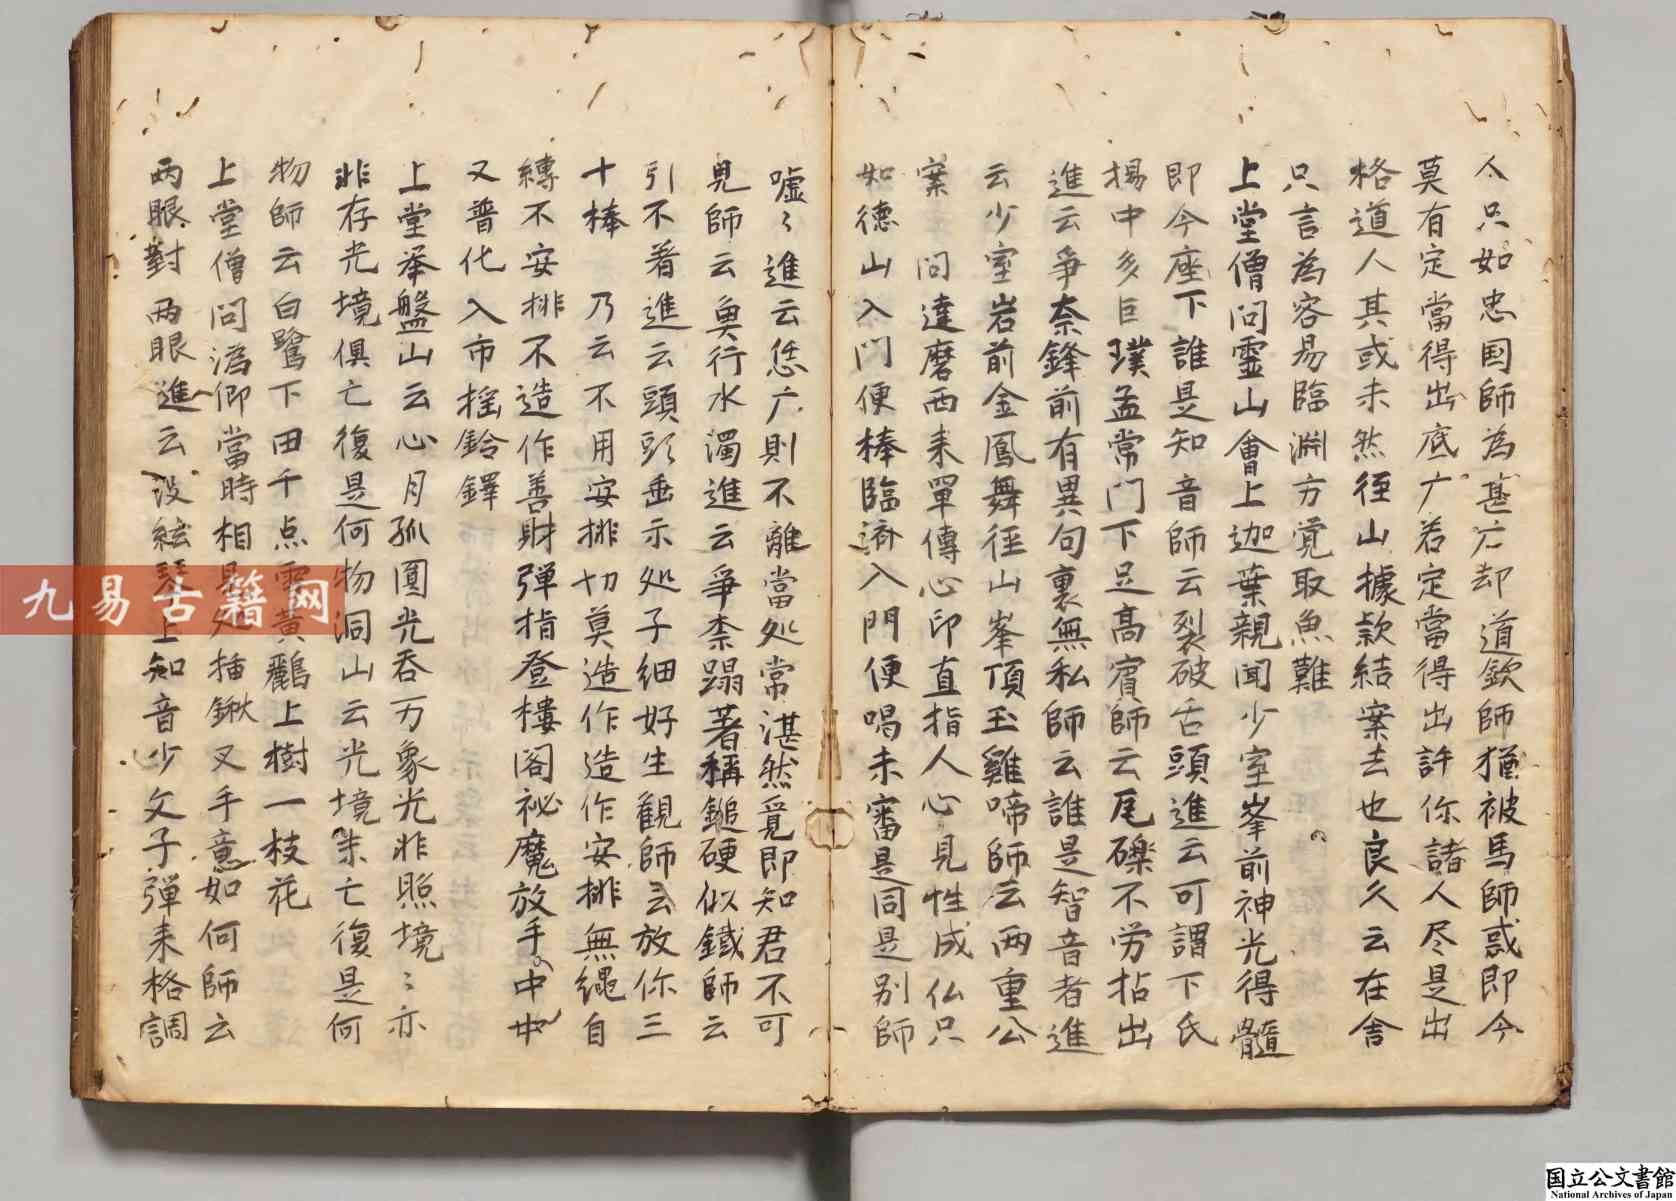 人只如忠国師為甚广却道欽師猶被馬師惑即今
莫有定當得出底广若定當得出許你諸人尽是出
格道人其或未然徑山據款結案去也良久云在舎
只言為容易臨淵方覚取魚難
上堂僧問霊山會上迦葉親聞少室峯前神光得髓
即今座下誰是知音師云裂破舌頭進云可謂下氏
揚中多巨璞孟常門下足高賓師云尾礫不労拈出
進云争奈鋒前有異句裏無私師云誰是智音者進
云少室岩前金鳳舞徑山峯頂玉雞啼師云两重公
案 問達磨西来單傳心印直指人心見性成仏只
如德山入门便棒臨済入門便喝未審是同是别師
嘘〻進云恁广則不離當処常湛然覓即知君不可
見師云奥行水濁進云爭柰蹋著稱鎚硬似鐵師云
引不着進云頭頭垂示処子细好生観師云放你三
十棒 乃云不用安排切莫造作造作安排無縄自
縛不安排不造作善財弾指登樓閣祕魔放手中
又普化入市摇鈴鐸
上堂举盤山云心月孤圓光吞万象光非照境〻亦
非存光境俱亡復是何物洞山云光境未亡復是何
物師云白鷺下田千点雪黄鸝上樹一枝花
上堂僧問潙仰當時相見処插鍬叉手意如何師云
两眼對两眼進云没絃琴上知音少父子弾来格調
九易古籍网
国立公文書館
National Archives of Japan